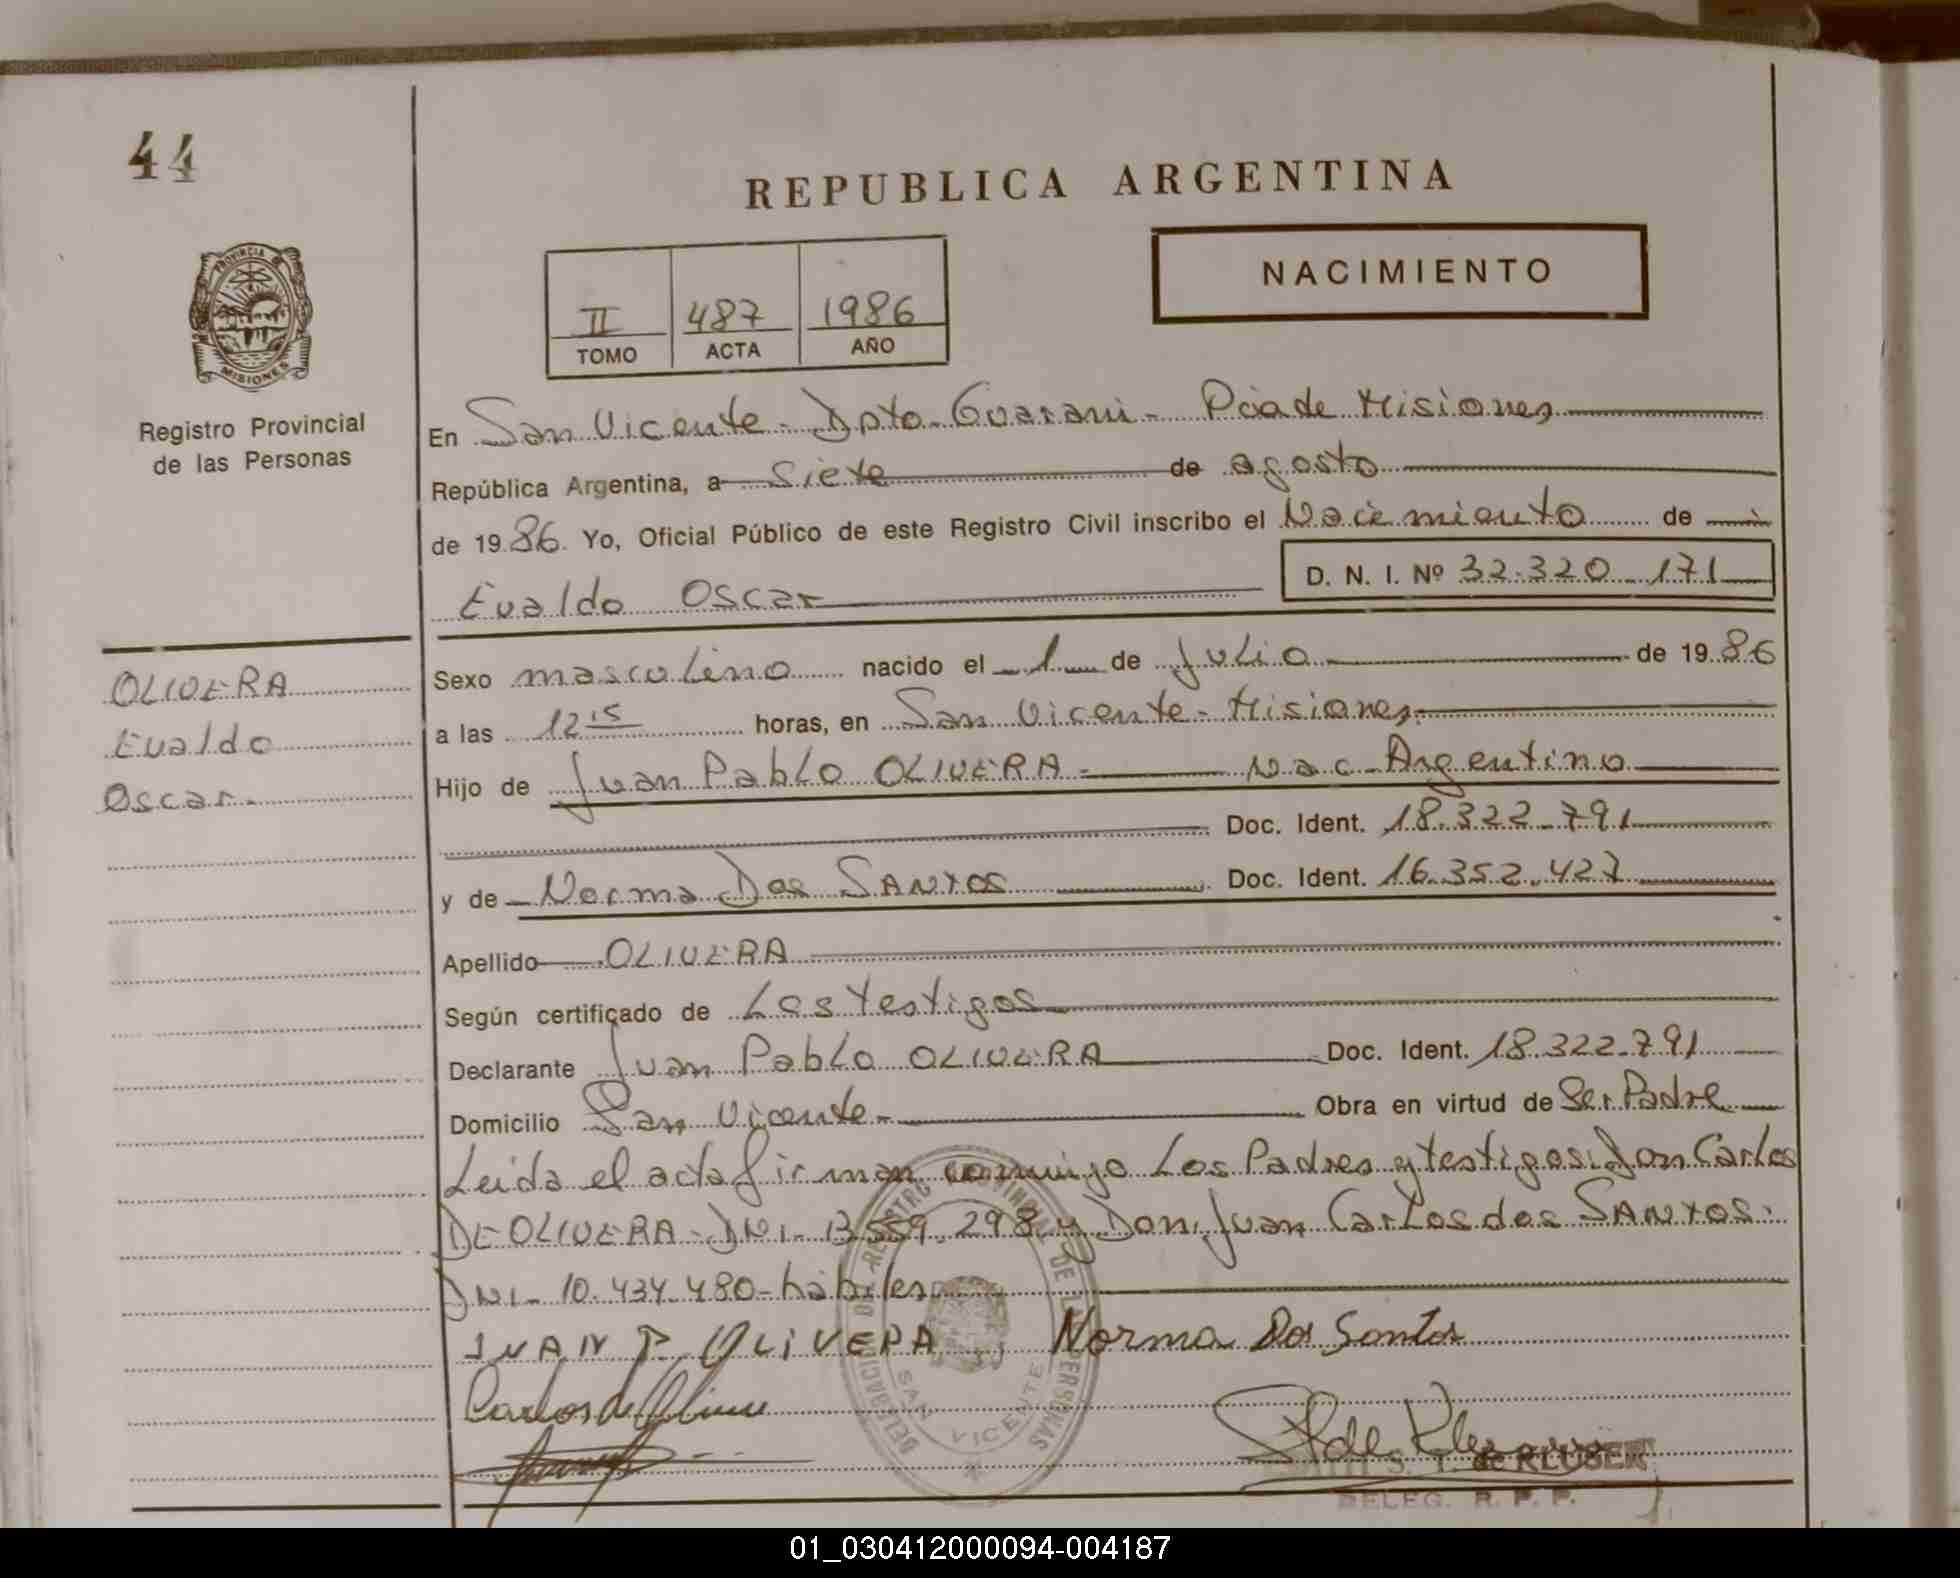 44
REPUBLICA ARGENTINA
PROVINCIA DE
MISIONES
NACIMIENTO
II 487 1986
TOMO ACTA AÑO
Registro Provincial
de las Personas
En San Vicente - Dpto. Guarani - Pcia de Misiones
República Argentina, a siete de agosto
de 1986. Yo, Oficial Público de este Registro Civil inscribo el Nacimiento de
Evaldo Oscar
D. N. I. Nº 32.320.171
OLIVERA
Evaldo
Oscar.
Sexo masculino nacido el 1 de Julio de 1986
a las 12 15 horas, en San Vicente - Misiones
Hijo de Juan Pablo OLIVERA - Nac. Argentino
Doc. Ident. 18.322.791
y de Norma Dos SANTOS Doc. Ident. 16.352.427
Apellido OLIVERA
Según certificado de Los testigos
Declarante Juan Pablo OLIVERA Doc. Ident. 18.322.791
Domicilio San Vicente - Obra en virtud de Ser Padre
Leida el acta firman conmigo Los Padres y testigos: Don Carlos
DE OLIVERA - DNI - 13.559.298 y Don Juan Carlos dos SANTOS -
DNI - 10.434.480 - hábiles
JUAN P. OLIVERA Norma Dos Santos
Carlos de Olivera
DELEGACION DEL REGISTRO PROVINCIAL DE LAS PERSONAS
SAN VICENTE
S. T. de KLUSER
DELEG. R. P. P.
01_030412000094-004187